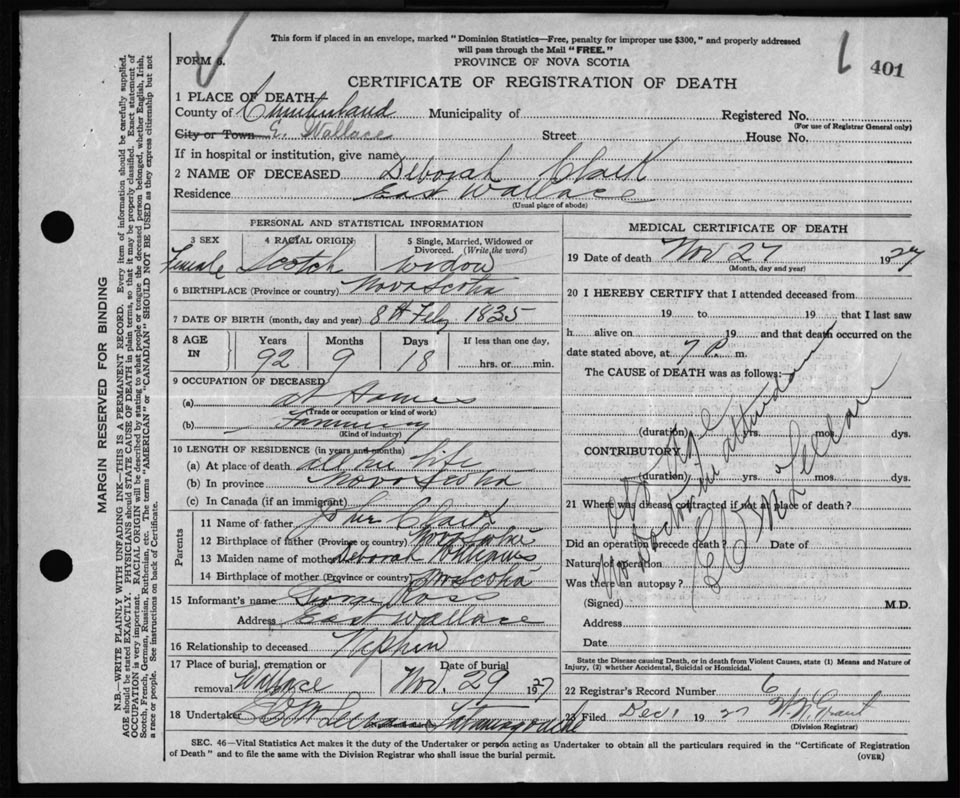 This form if placed in an envelope, marked "Dominion Statistics—Free, penalty for improper use $300," and properly addressed
will pass through the Mail "FREE."
FORM 6.
PROVINCE OF NOVA SCOTIA
401
CERTIFICATE OF REGISTRATION OF DEATH
1 PLACE OF DEATH
County of Cumberland Municipality of Registered No.
(For use of Registrar General only)
City or Town E. Wallace Street House No.
If in hospital or institution, give name
2 NAME OF DECEASED Deborah Clark
Residence East Wallace
(Usual place of abode)
PERSONAL AND STATISTICAL INFORMATION
3 SEX 4 RACIAL ORIGIN 5 Single, Married, Widowed or Divorced. (Write the word)
Female Scotch Widow
6 BIRTHPLACE (Province or country) Nova Scotia
7 DATE OF BIRTH (month, day and year) 8th Feby 1835
8 AGE IN Years Months Days If less than one day,
92 9 18 hrs. or min.
9 OCCUPATION OF DECEASED
(a) at Home
(Trade or occupation or kind of work)
(b)
(Kind of industry)
10 LENGTH OF RESIDENCE (in years and months)
(a) At place of death all her life
(b) In province Nova Scotia
(c) In Canada (if an immigrant)
Parents
11 Name of father Clark
12 Birthplace of father (Province or country) Nova Scotia
13 Maiden name of mother Deborah
14 Birthplace of mother (Province or country) Novascotia
15 Informant's name George Ross
Address East Wallace
16 Relationship to deceased Nephew
17 Place of burial, cremation or removal Wallace Date of burial Nov. 29 1927
18 Undertaker Tatamagouche
MEDICAL CERTIFICATE OF DEATH
19 Date of death Nov 27 1927
(Month, day and year)
20 I HEREBY CERTIFY that I attended deceased from
19 to 19 that I last saw
h alive on 19 and that death occurred on the
date stated above, at 7 P. m.
The CAUSE of DEATH was as follows:
(duration) yrs. mos. dys.
CONTRIBUTORY
(duration) yrs. mos. dys.
Old Age
No Doctor in attendance
21 Where was disease contracted if not at place of death?
Did an operation precede death? Date of
Nature of operation
Was there an autopsy?
(Signed) M.D.
Address
Date
State the Disease causing Death, or in death from Violent Causes, state (1) Means and Nature of
Injury, (2) whether Accidental, Suicidal or Homicidal.
22 Registrar's Record Number 6
23 Filed Dec 1 1927 Grant
(Division Registrar)
SEC. 46—Vital Statistics Act makes it the duty of the Undertaker or person acting as Undertaker to obtain all the particulars required in the "Certificate of Registration
of Death" and to file the same with the Division Registrar who shall issue the burial permit.
(OVER)
MARGIN RESERVED FOR BINDING
N.B.—WRITE PLAINLY WITH UNFADING INK—THIS IS A PERMANENT RECORD. Every item of information should be carefully supplied.
AGE should be stated EXACTLY. PHYSICIANS should STATE CAUSE OF DEATH in plain terms, so that it may be properly classified. Exact statement of
OCCUPATION is very important. RACIAL ORIGIN will be described by stating to what people or tongue the deceased person belonged, whether English, Irish,
Scotch, French, German, Russian, Ruthenian, etc. The terms "AMERICAN" or "CANADIAN" SHOULD NOT BE USED as they express citizenship but not
a race or people. See instructions on back of Certificate.